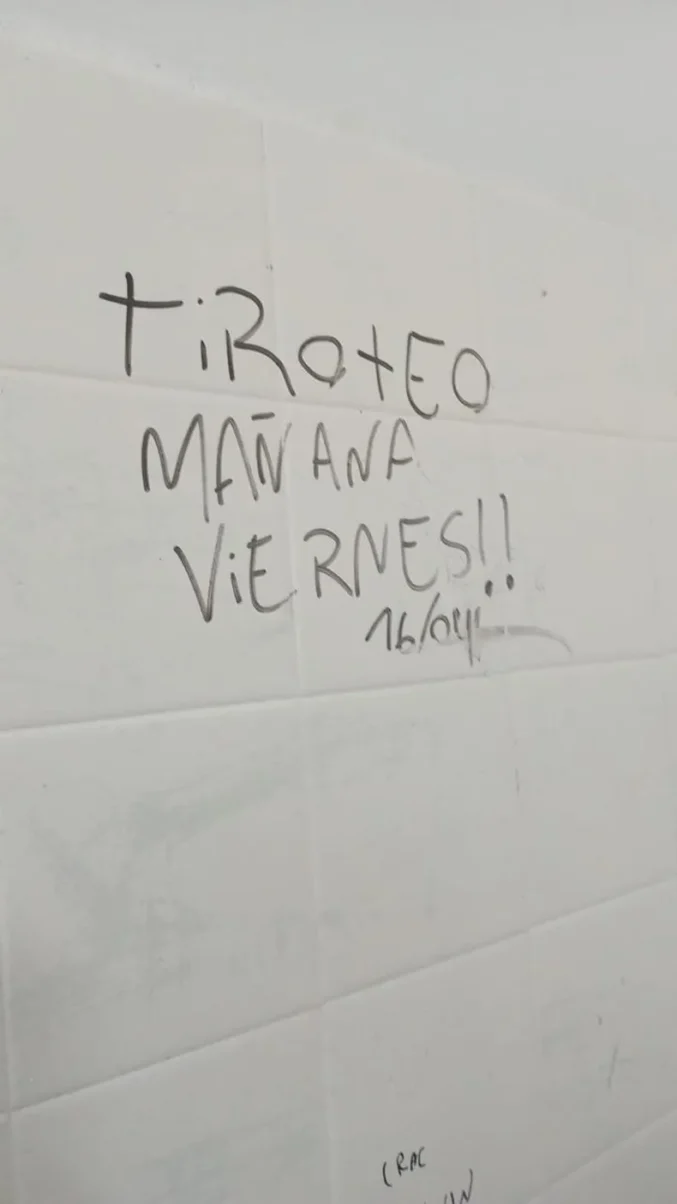 TiROtEO
MAÑANA
ViERNES!!
16/04
(RAC